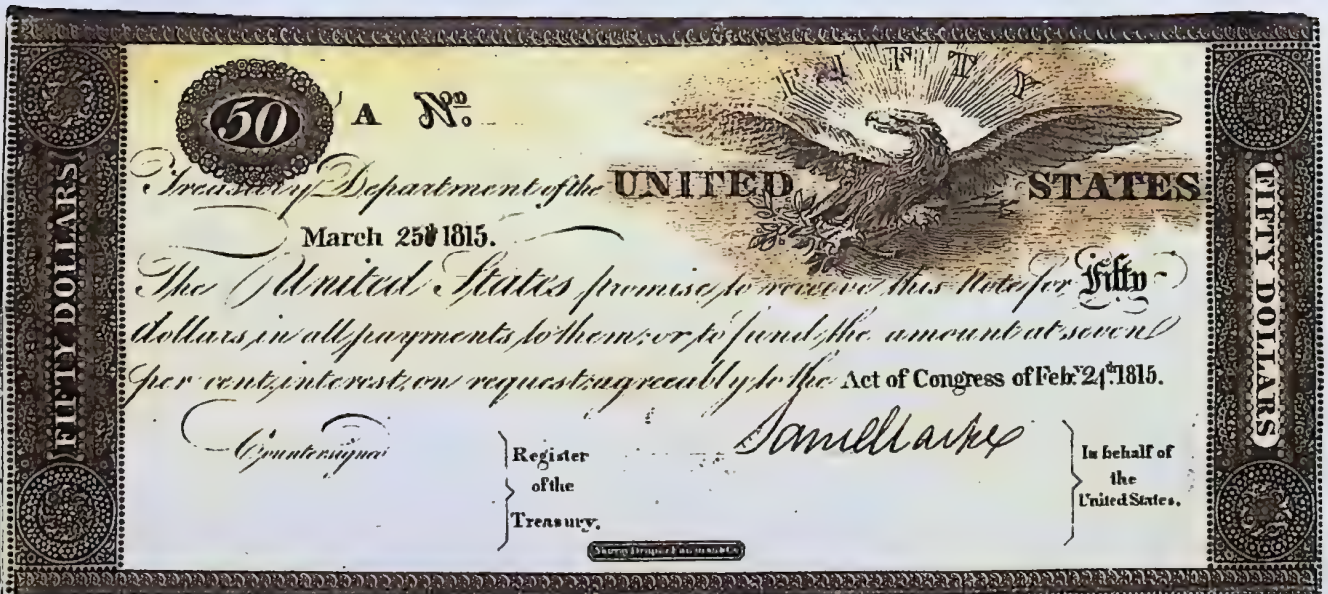 FIFTY
50 A No.
Treasury Department of the UNITED STATES
March 25th 1815.
The United States promise to receive this Note for Fifty
dollars in all payments to them; or to fund the amount at seven
per cent, interest, on request, agreeably to the Act of Congress of Feb.y 24th. 1815.
Countersigned
Register
of the
Treasury.
In behalf of
the
United States.
Murray Draper Fairman & Co
FIFTY DOLLARS
FIFTY DOLLARS